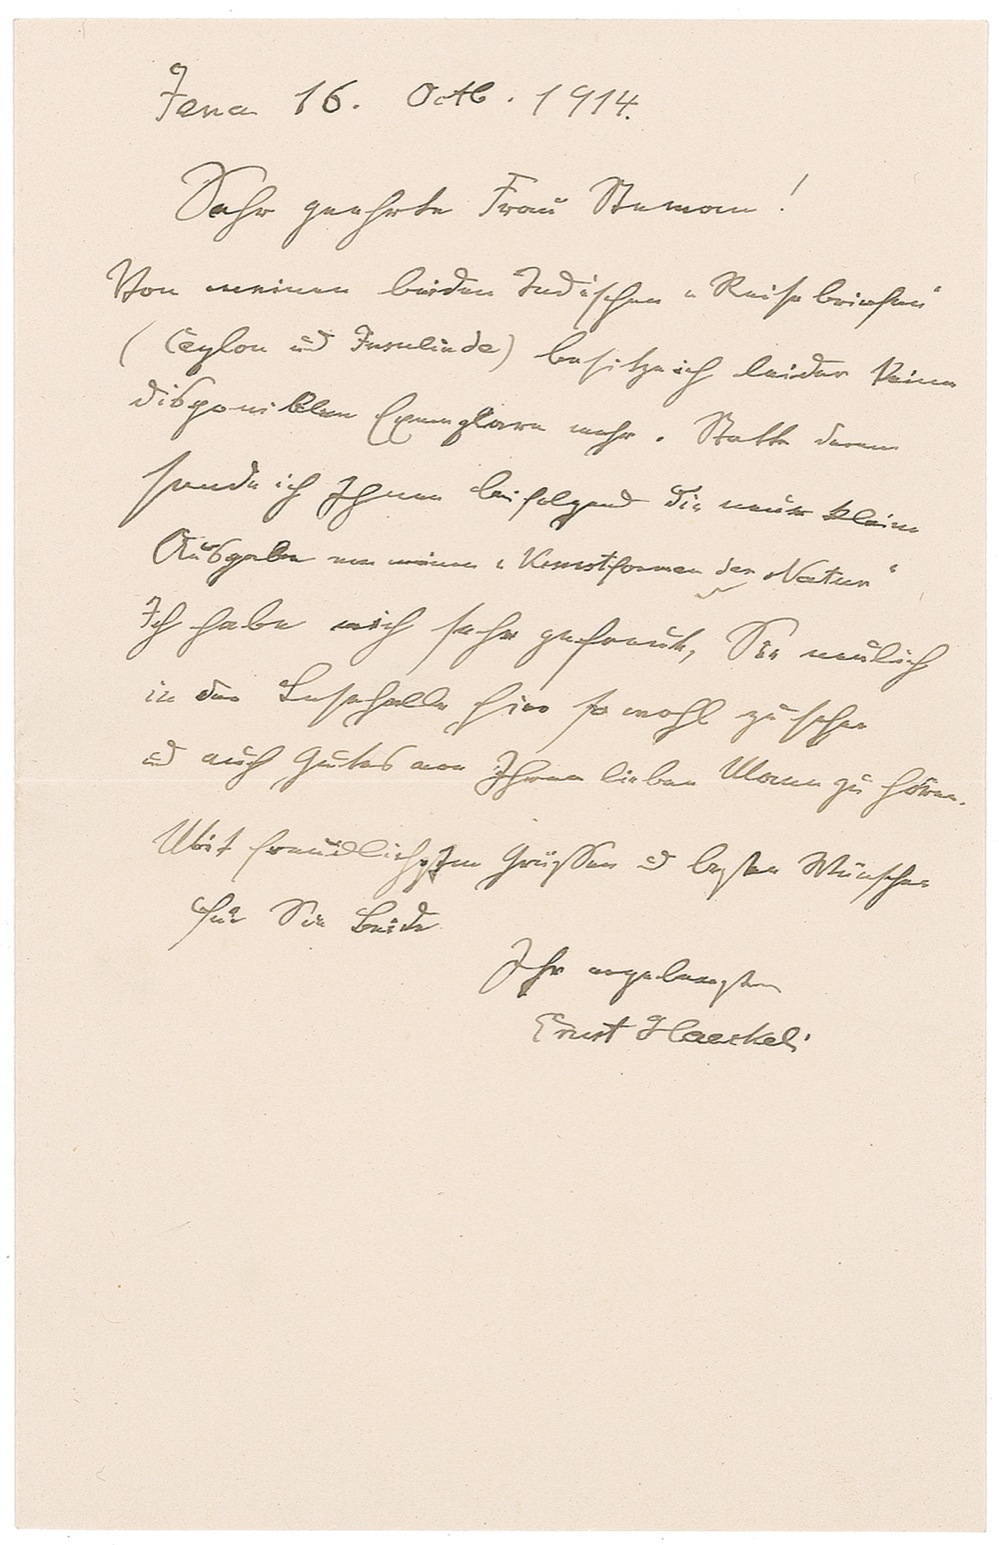 Jena 16. Octb. 1914.
Sehr geehrte Frau
Von meinen beiden Indischen „Reisebriefen“
(Ceylon und Insulinde) besitze ich leider keine
disponiblen Exemplare mehr. Statt deren
sende ich Ihnen beifolgend die neue kleine
Ausgabe von meinen „Kunstformen der Natur“
Ich habe mich sehr gefreut, Sie neulich
in der Lesehalle hier so wohl zu sehen
und auch Gutes von Ihrem lieben Mann zu hören.
Mit freundlichsten Grüssen und besten Wünschen
für Sie Beide
Ihr ergebenster
Ernst Haeckel.